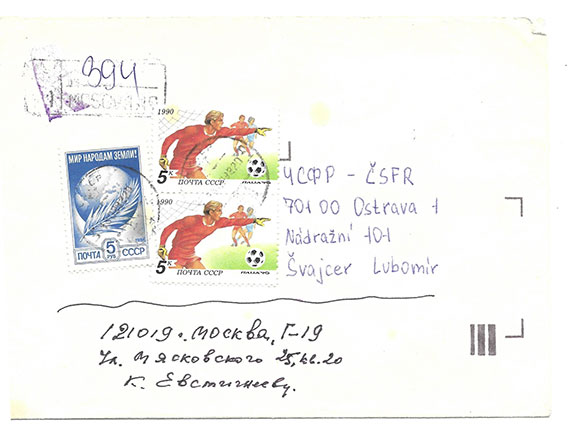 394
1990
5 к
ПОЧТА СССР
МИР НАРОДАМ ЗЕМЛИ!
5 РУБ
ПОЧТА СССР
1990
5 к
ПОЧТА СССР
ЧСФР - ČSFR
701 00 Ostrava 1
Nádražní 101
Švajcer Lubomír
121019 г. Москва, Г-19
Ул. Мясковского 25, кв. 20
К. Евстигнееву.